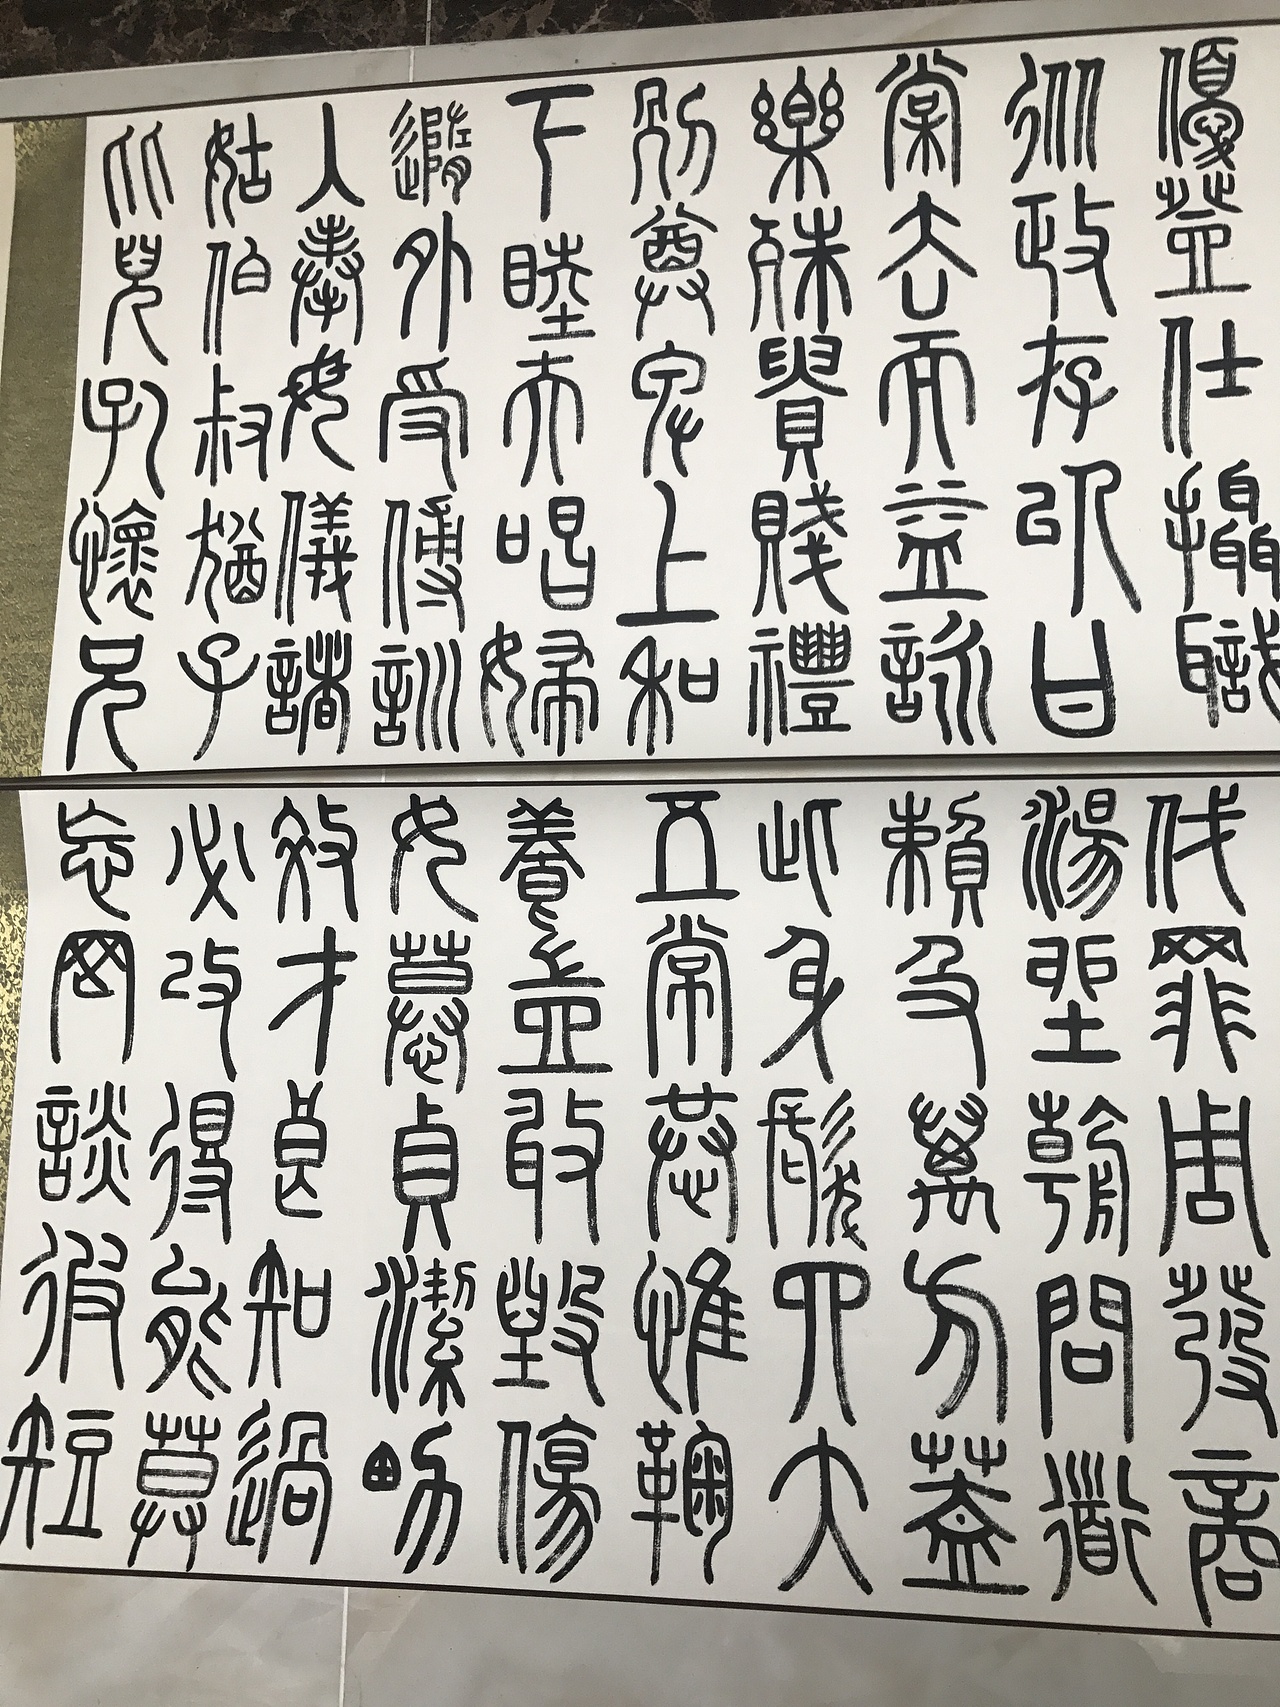 優登仕攝職
從政存以甘
棠去而益詠
樂殊貴賤禮
別尊卑上和
下睦夫唱婦
隨外受傅訓
入奉母儀諸
姑伯叔猶子
比兒孔懷兄
伐罪周發商
湯坐朝問道
賴及萬方蓋
此身髮四大
五常恭惟鞠
養豈敢毀傷
女慕貞潔男
效才良知過
必改得能莫
忘罔談彼短